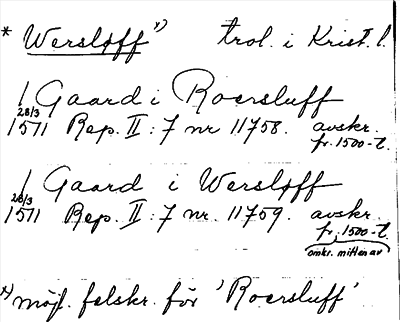 * Wersløff x) trol. i Krist. l.
1 Gaard i Roersluff
28/3
1511 Rep. II : 7 nr 11758. avskr.
fr. 1500-t.
1 Gaard i Wersløff
28/3
1511 Rep. II : 7 nr. 11759. avskr.
fr. 1500-t.
omkr. mitten av
x) möjl. felskr. för 'Roersluff'